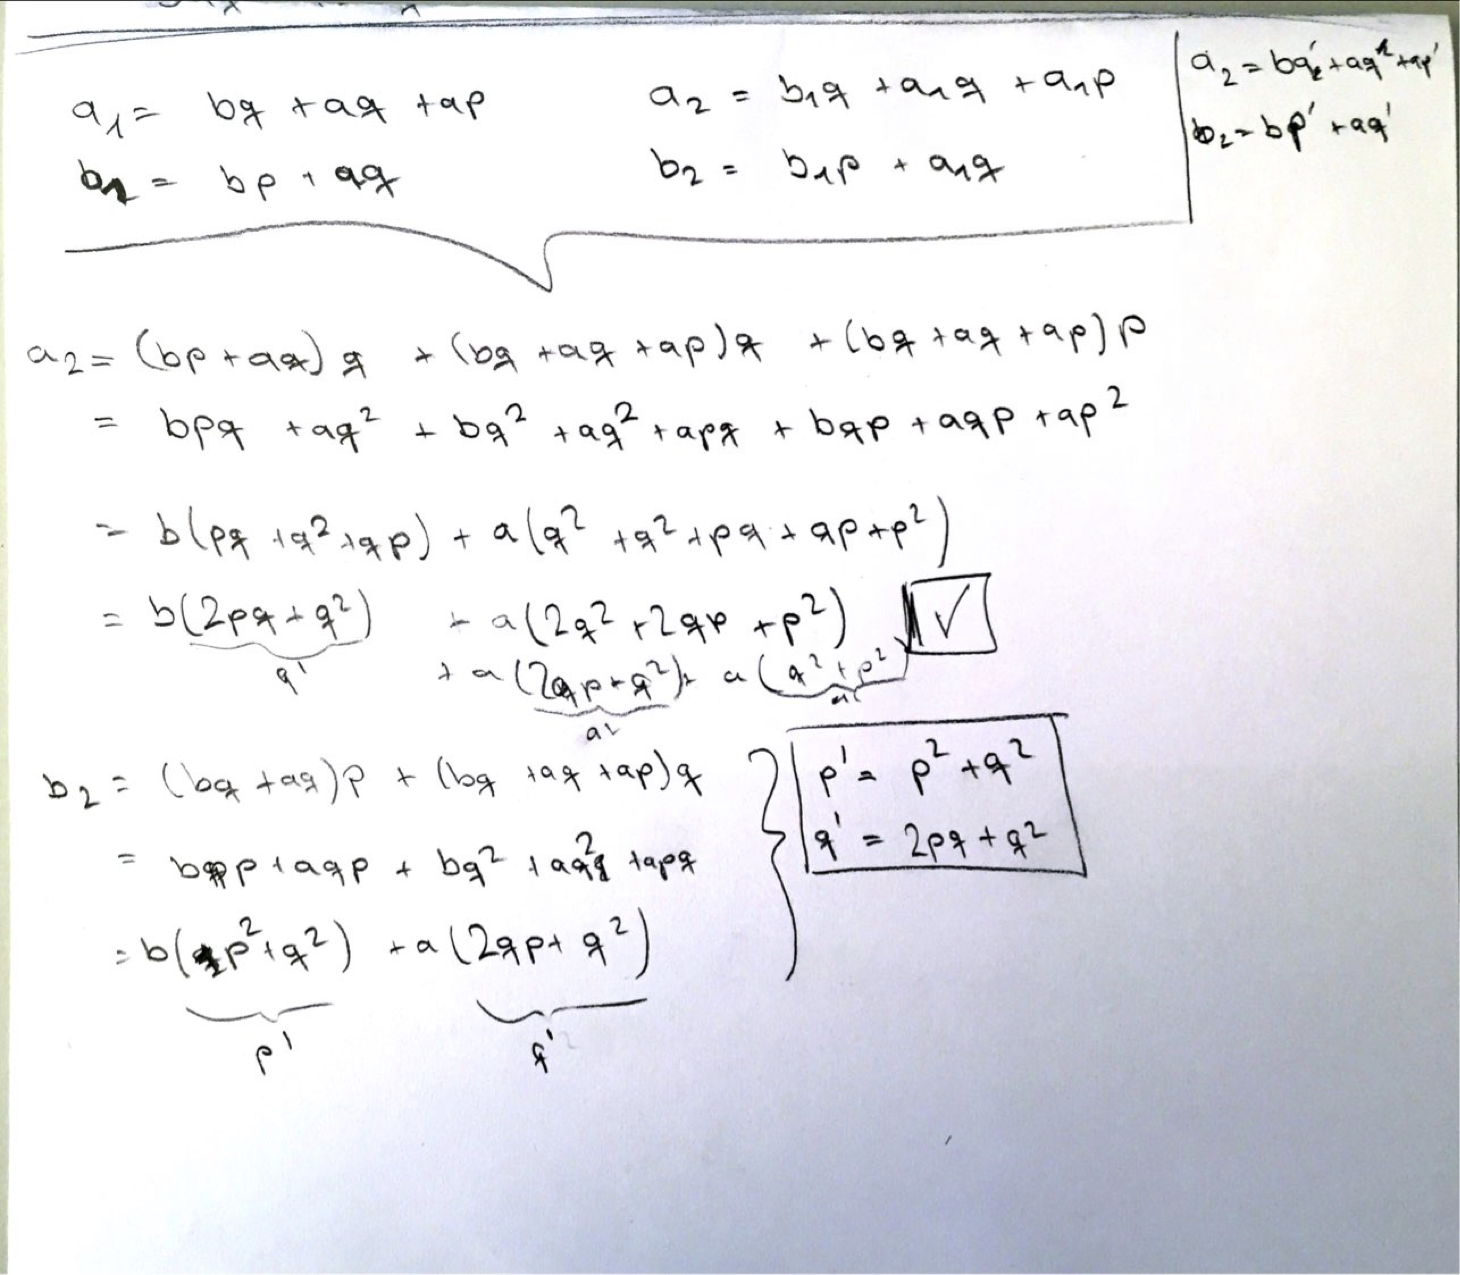 a₁ = bq + aq + ap
b₁ = bp + aq
a₂ = b₁q + a₁q + a₁p
b₂ = b₁p + a₁q
a₂ = bq' + aq' + ap'
b₂ = bp' + aq'
a₂ = (bp + aq) q + (bq + aq + ap) q + (bq + aq + ap) p
= bpq + aq² + bq² + aq² + apq + bqp + aqp + ap²
= b(pq + q² + qp) + a(q² + q² + pq + qp + p²)
= b(2pq + q²) + a(2q² + 2qp + p²) ✓
q' + a(2qp + q²) + a(q² + p²)
b₂ = (bq + aq)p + (bq + aq + ap)q
= bqp + aqp + bq² + aq² + apq
= b(p² + q²) + a(2qp + q²)
p' q'
p' = p² + q²
q' = 2pq + q²